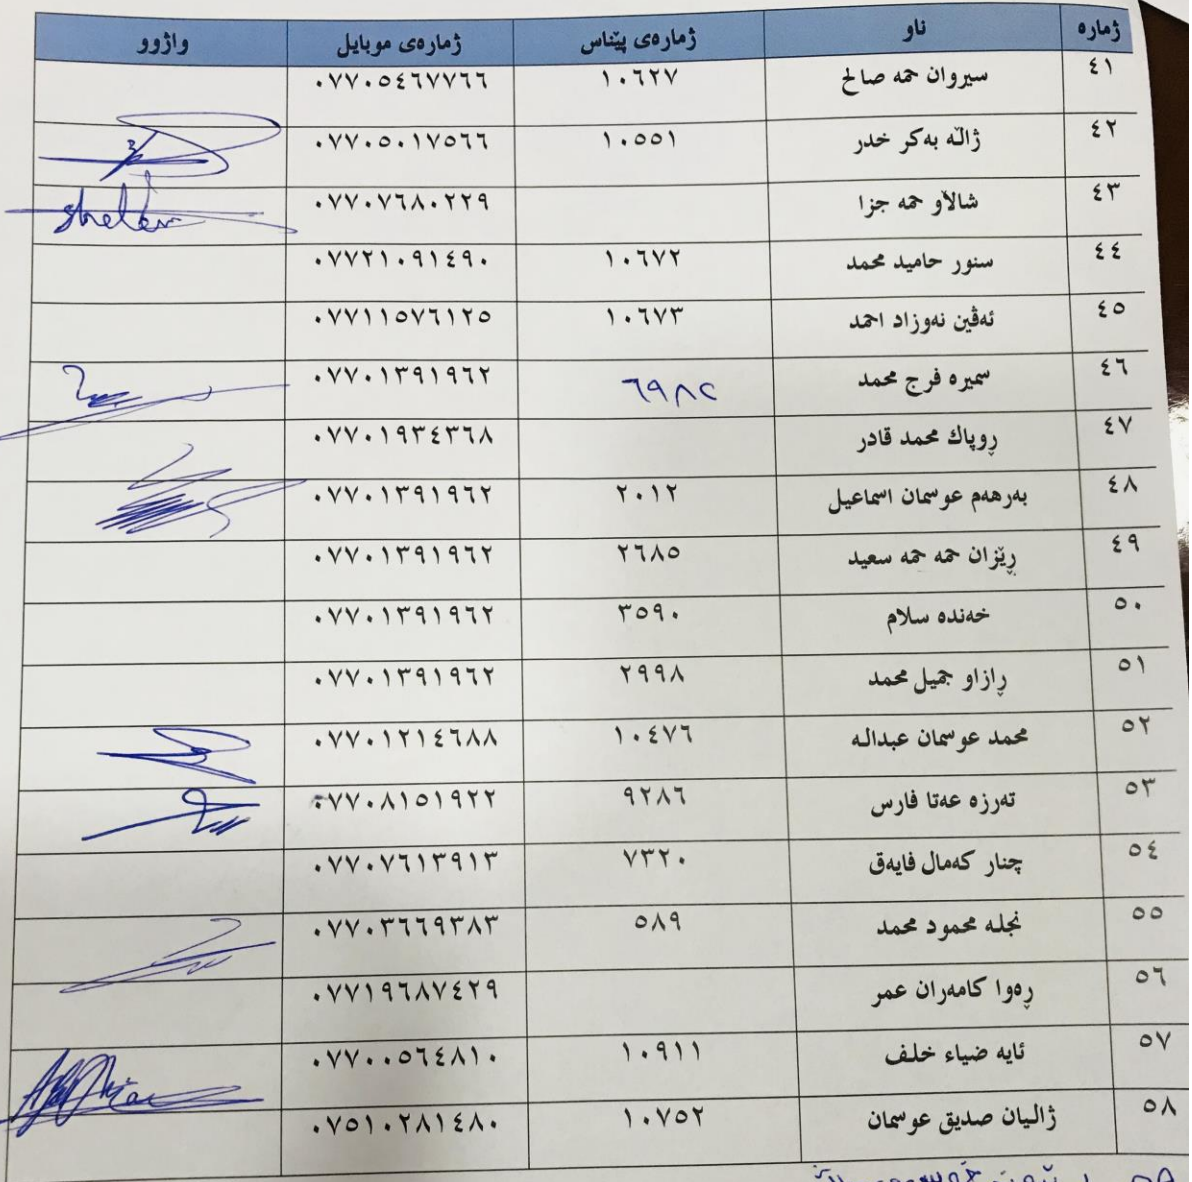 ژمارە ناو ژمارەی پێناس ژمارەی موبایل واژوو
٤١ سیروان حمە صالح ١٠٦٢٧ ٠٧٧٠٥٤٦٧٧٦٦
٤٢ ژاڵە بەکر خدر ١٠٥٥١ ٠٧٧٠٥٠١٧٥٦٦
٤٣ شاڵاو حمە جزا ٠٧٧٠٧٦٨٠٢٢٩
٤٤ سنور حامید محمد ١٠٦٧٢ ٠٧٧٢١٠٩١٤٩٠
٤٥ ئەڤین نەوزاد احمد ١٠٦٧٣ ٠٧٧١١٥٧٦١٢٥
٤٦ سمیرە فرج محمد ٦٩٨٢ ٠٧٧٠١٣٩١٩٦٢
٤٧ ڕوپاك محمد قادر ٠٧٧٠١٩٣٤٣٦٨
٤٨ بەرهەم عوسمان اسماعیل ٢٠١٢ ٠٧٧٠١٣٩١٩٦٢
٤٩ ڕێزان حمە حمە سعید ٢٦٨٥ ٠٧٧٠١٣٩١٩٦٢
٥٠ خەندە سلام ٣٥٩٠ ٠٧٧٠١٣٩١٩٦٢
٥١ ڕازاو جمیل محمد ٢٩٩٨ ٠٧٧٠١٣٩١٩٦٢
٥٢ محمد عوسمان عبدالە ١٠٤٧٦ ٠٧٧٠١٢١٤٦٨٨
٥٣ تەرزە عەتا فارس ٩٢٨٦ ٠٧٧٠٨١٥١٩٢٢
٥٤ چنار کەمال فایەق ٧٣٢٠ ٠٧٧٠٧٦١٣٩١٣
٥٥ نجلە محمود محمد ٥٨٩ ٠٧٧٠٣٦٦٩٣٨٣
٥٦ ڕەوا کامەران عمر ٠٧٧١٩٦٨٧٤٢٩
٥٧ ئایە ضیاء خلف ١٠٩١١ ٠٧٧٠٠٥٦٤٨١٠
٥٨ ژالیان صدیق عوسمان ١٠٧٥٢ ٠٧٥١٠٢٨١٤٨٠